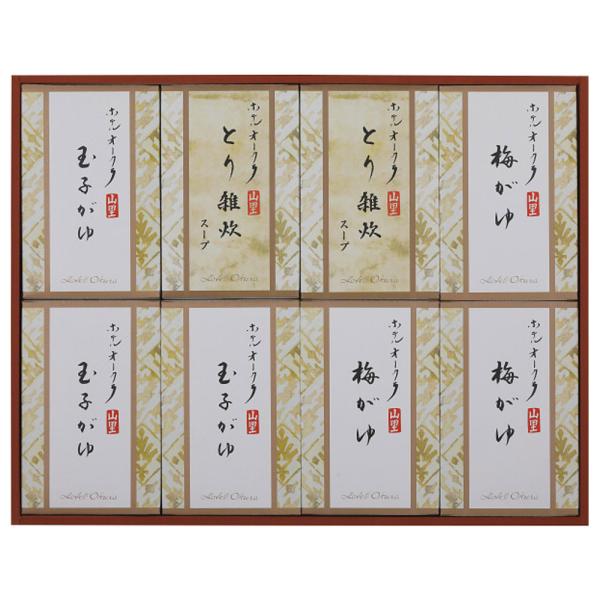 ホテルオークラ
山里
玉子がゆ
Hotel Okura
ホテルオークラ
山里
とり雑炊
スープ
Hotel Okura
ホテルオークラ
山里
とり雑炊
スープ
Hotel Okura
ホテルオークラ
山里
梅がゆ
Hotel Okura
ホテルオークラ
山里
玉子がゆ
Hotel Okura
ホテルオークラ
山里
玉子がゆ
Hotel Okura
ホテルオークラ
山里
梅がゆ
Hotel Okura
ホテルオークラ
山里
梅がゆ
Hotel Okura